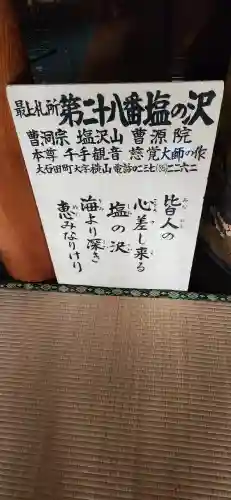 最上札所 第二十八番塩の沢
曹洞宗 塩沢山 曹源院
本尊 千手観音 慈覚大師の作
大石田町大字横山 電話〇二三七(35)二二六二
皆人の
心差し来る
塩の沢
海より深き
恵みなりけり